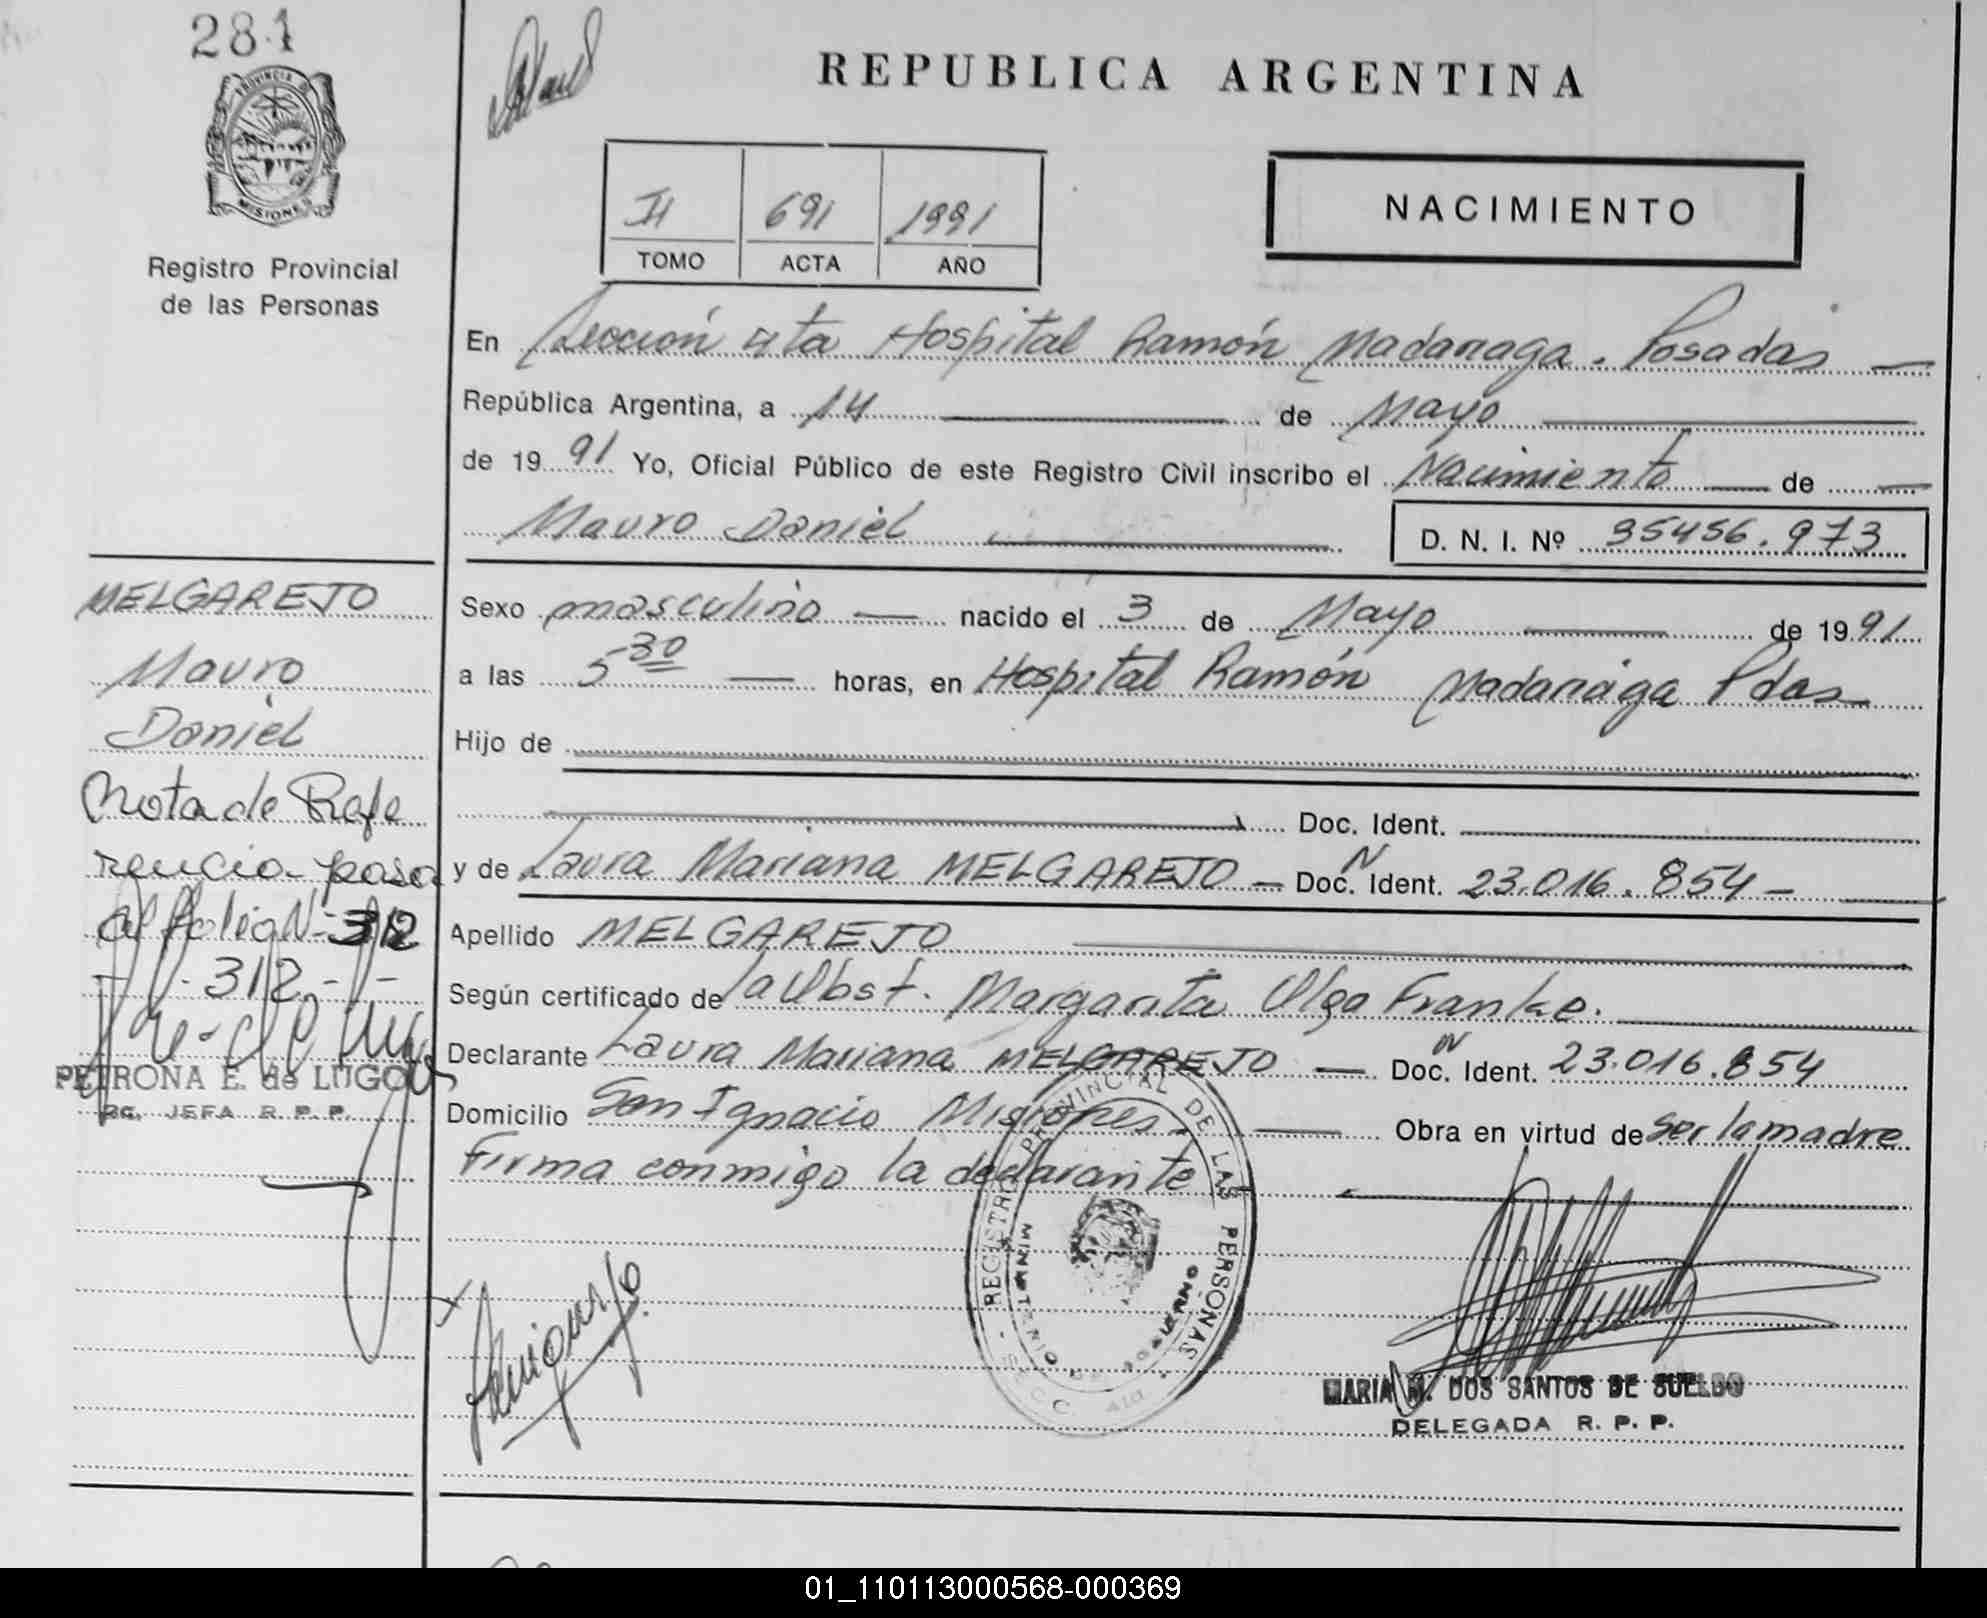 281
PROVINCIA DE
MISIONES
Registro Provincial
de las Personas
REPUBLICA ARGENTINA
II 691 1991
TOMO ACTA AÑO
NACIMIENTO
En Sección 4ta Hospital Ramón Madariaga. Posadas —
República Argentina, a 14 — de Mayo —
de 1991 Yo, Oficial Público de este Registro Civil inscribo el Nacimiento — de —
Mauro Daniel —
D. N. I. Nº 35456.973
MELGAREJO
Mauro
Daniel
Nota de Refe
rencia pasa
al folio Nº 312
- 312 -
PETRONA E. de LUGO
JEFA R. P. P.
Sexo masculino — nacido el 3 de Mayo — de 1991
a las 5 30 — horas, en Hospital Ramón Madariaga Pdas —
Hijo de —
— Doc. Ident. —
y de Laura Mariana MELGAREJO — Doc. N Ident. 23.016.854 —
Apellido MELGAREJO —
Según certificado de la Obst. Margarita Olga Franke. —
Declarante Laura Mariana MELGAREJO — Doc. N Ident. 23.016.854
Domicilio San Ignacio Misiones. — Obra en virtud de ser la madre
Firma conmigo la declarante —
REGISTRO PROVINCIAL DE LAS PERSONAS
MINISTERIO DE GOBIERNO
MARIA M. DOS SANTOS DE SUELDO
DELEGADA R. P. P.
01_110113000568-000369